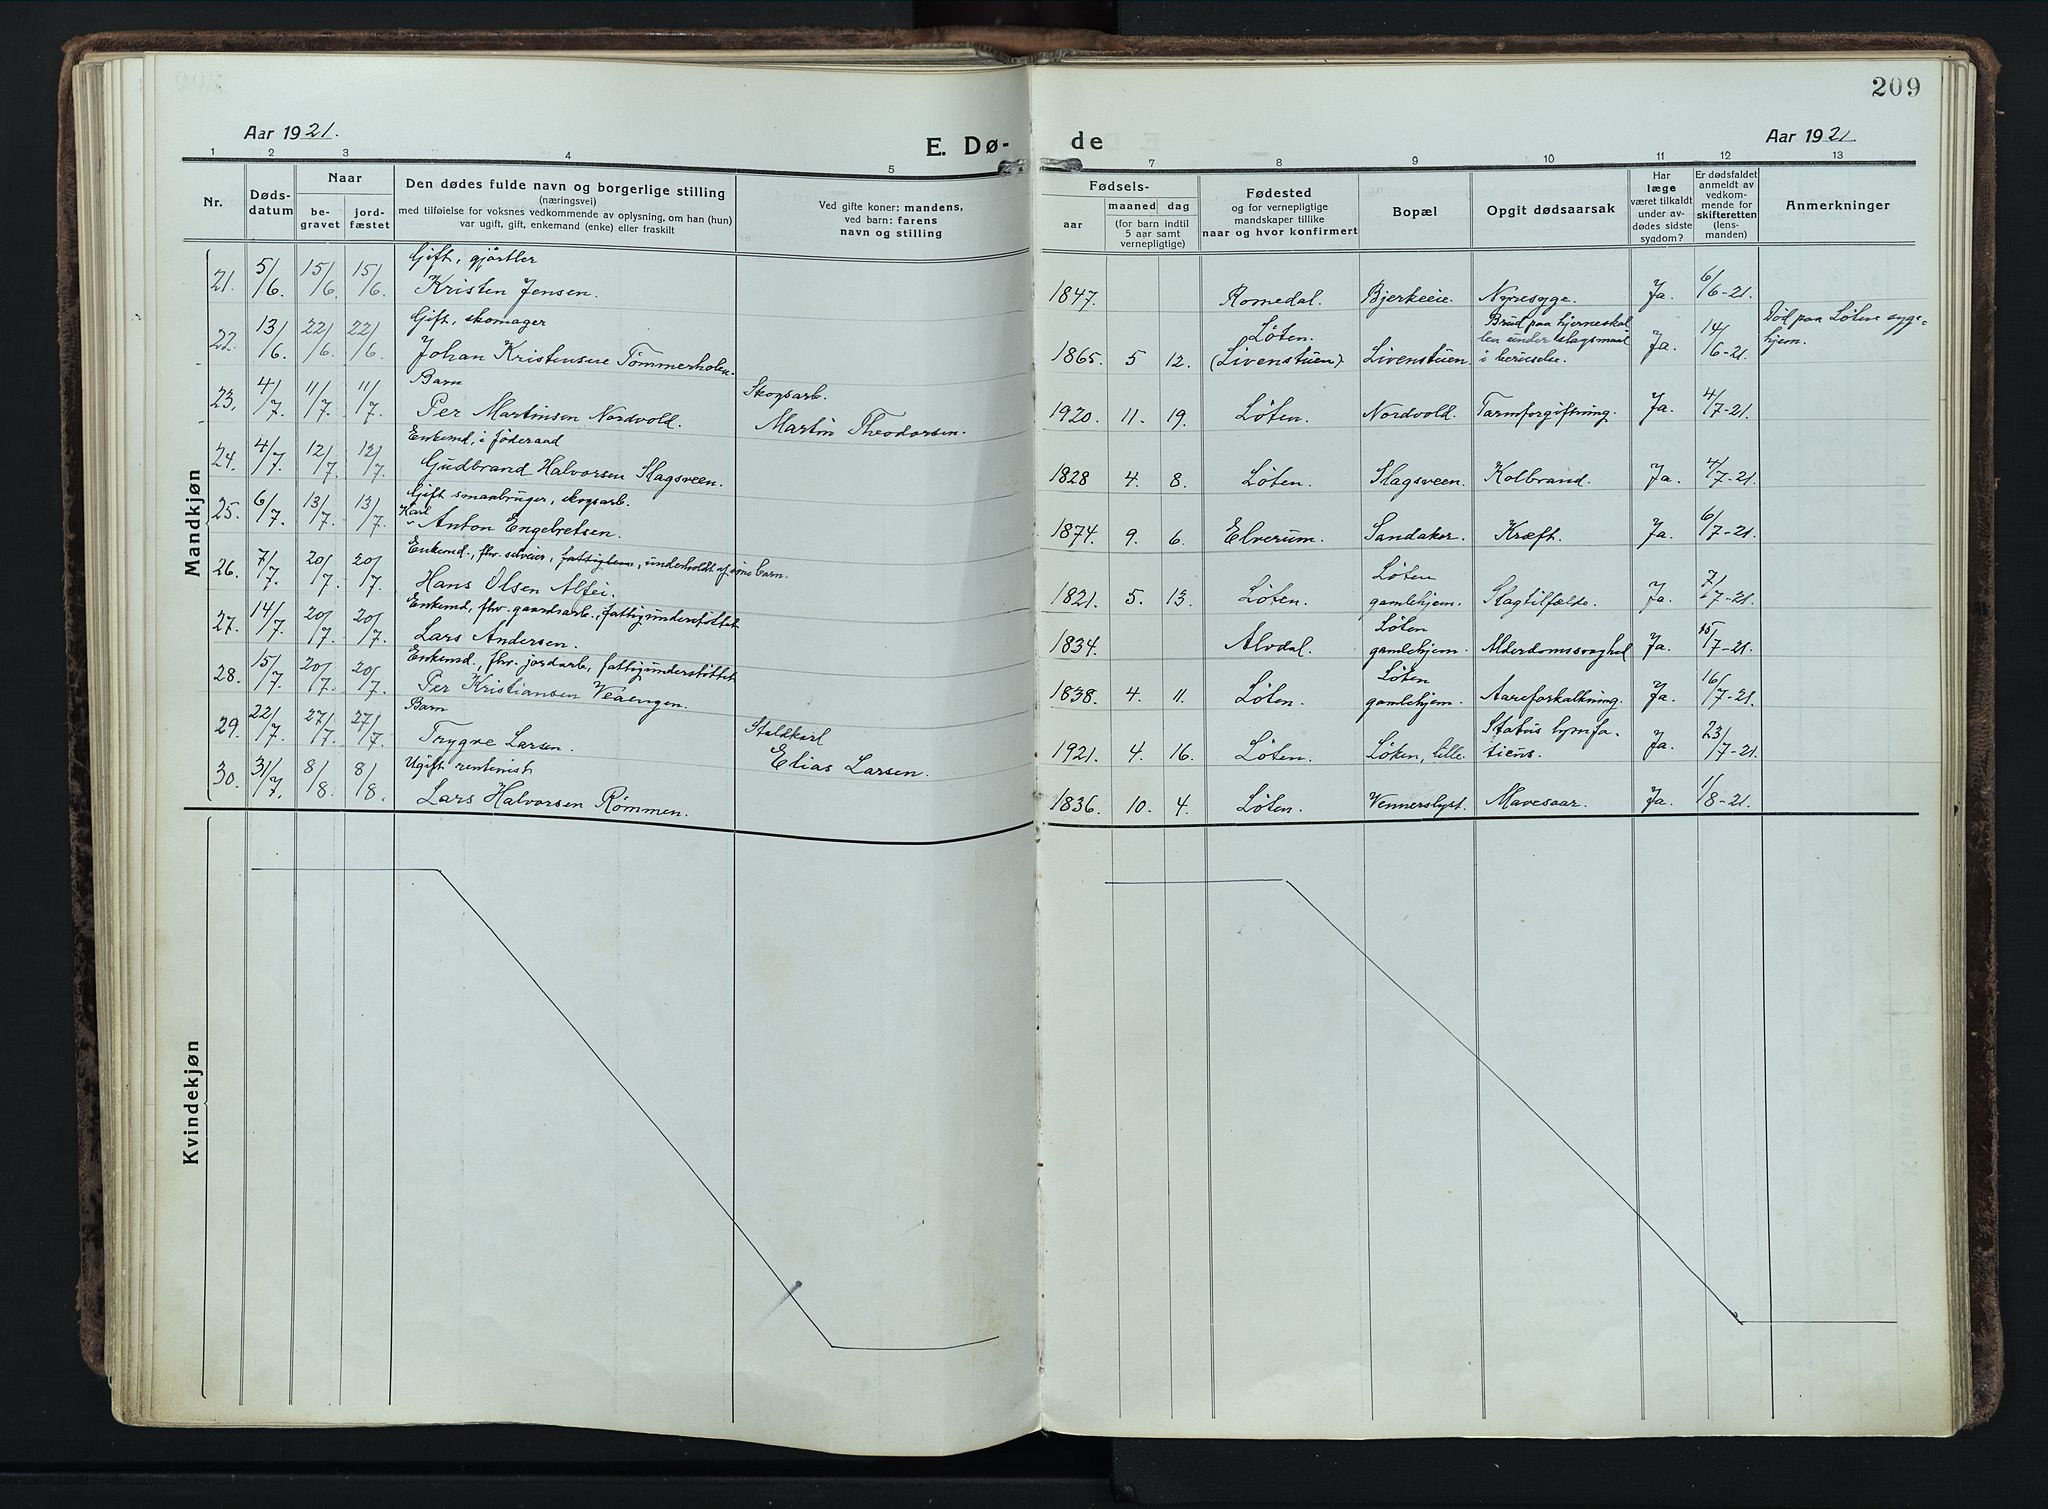 209
Aar 1921.
E. Dø-
de
Aar 1921.
1 2 3 4 5 7 8 9 10 11 12 13
Nr.
Døds-
datum
Naar
be-
gravet
jord-
fæstet
Den dødes fulde navn og borgerlige stilling
(næringsvei)
med tilføielse for voksnes vedkommende av oplysning, om han (hun)
var ugift, gift, enkemand (enke) eller fraskilt
Ved gifte koner: mandens,
ved barn: farens
navn og stilling
Fødsels-
aar
maaned dag
(for barn indtil
5 aar samt
vernepligtige)
Fødested
og for vernepligtige
mandskaper tillike
naar og hvor konfirmert
Bopæl
Opgit dødsaarsak
Har
læge
været tilkaldt
under av-
dødes sidste
sygdom?
Er dødsfaldet
anmeldt av
vedkom-
mende for
skifteretten
(lens-
manden)
Anmerkninger
Mandkjøn
Gift, gjørtler
21. 5/6. 15/6. 15/6. Kristen Jensen. 1847. Romedal. Bjerkeeie. Nyresyge. Ja. 6/6-21.
Gift, skomager
22. 13/6. 22/6. 22/6. Johan Kristensen Tømmerholen. 1865. 5 12. Løten. (Livenstuen) Livenstuen. Brud paa hjerneskal-
len under slagsmaal
i beruselse. Ja. 14/6-21. Død paa Løten syge-
hjem.
Barn Skogsarb.
23. 4/7. 11/7. 11/7. Per Martinsen Nordvold. Martin Theodorsen. 1920. 11. 19. Løten. Nordvold. Tarmforgiftning. Ja. 4/7-21.
Enkemd, i føderaad
24. 4/7. 12/7. 12/7. Gudbrand Halvorsen Slagsveen. 1828 4. 8. Løten. Slagsveen. Kolbrand. Ja. 4/7-21.
Gift smaabruger, skogsarb.
25. 6/7. 13/7. 13/7. Karl Anton Engebretsen. 1874. 9. 6. Elverum. Sandaker. Kræft. Ja. 6/7-21.
Enkemd., fhv. selveier, fattiglem, underholdt af sine barn.
26. 7/7. 20/7. 20/7. Hans Olsen Alfei. 1821. 5. 13. Løten. Løten
gamlehjem. Slagtilfælde. Ja. 7/7-21.
Enkemd, fhv. gaardsarb., fattigunderstøttet
27. 14/7. 20/7. 20/7. Lars Andersen. 1834. Alvdal. Løten
gamlehjem. Alderdomssvaghed Ja. 15/7-21.
Enkemd., fhv. jordarb, fattigunderstøttet
28. 15/7. 20/7. 20/7. Per Kristiansen Veaengen. 1838. 4. 11. Løten. Løten
gamlehjem. Aareforkalkning. Ja. 16/7-21.
Barn Staldkarl
29. 22/7. 27/7. 27/7. Trygve Larsen. Elias Larsen. 1921. 4. 16. Løten. Løken, lille. Status lymfa-
ticus. Ja. 23/7-21.
Ugift rentenist
30. 31/7. 8/8. 8/8. Lars Halvorsen Rømmen. 1836. 10. 4. Løten. Vennerslyst. Mavesaar. Ja. 1/8-21.
Kvindekjøn